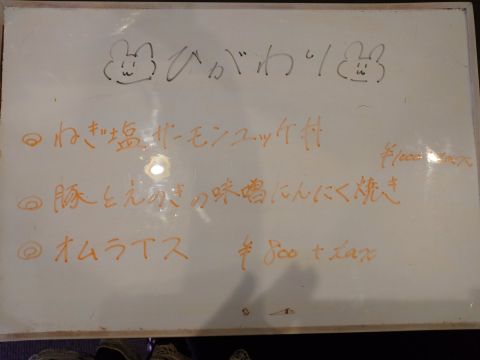 ひがわり
◎ ねぎ塩サーモンユッケ丼
¥1000+tax
◎ 豚とえのきの味噌にんにく焼き
◎ オムライス ¥800+tax